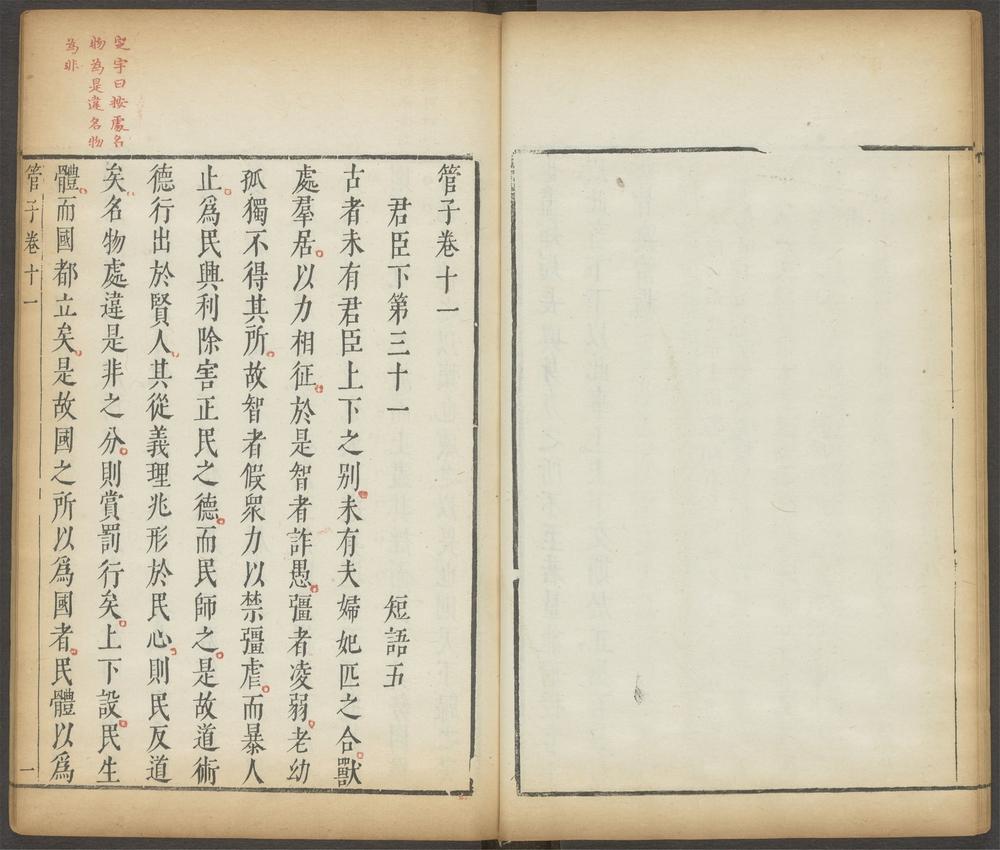 定宇曰按處名
物為是違名物
為非
管子卷十一
君臣下第三十一 短語五
古者未有君臣上下之別未有夫婦妃匹之合獸
處羣居以力相征於是智者詐愚彊者凌弱老幼
孤獨不得其所故智者假衆力以禁彊虐而暴人
止爲民興利除害正民之德而民師之是故道術
德行出於賢人其從義理兆形於民心則民反道
矣名物處違是非之分則賞罰行矣上下設民生
體而國都立矣是故國之所以爲國者民體以爲
管子卷十一 一